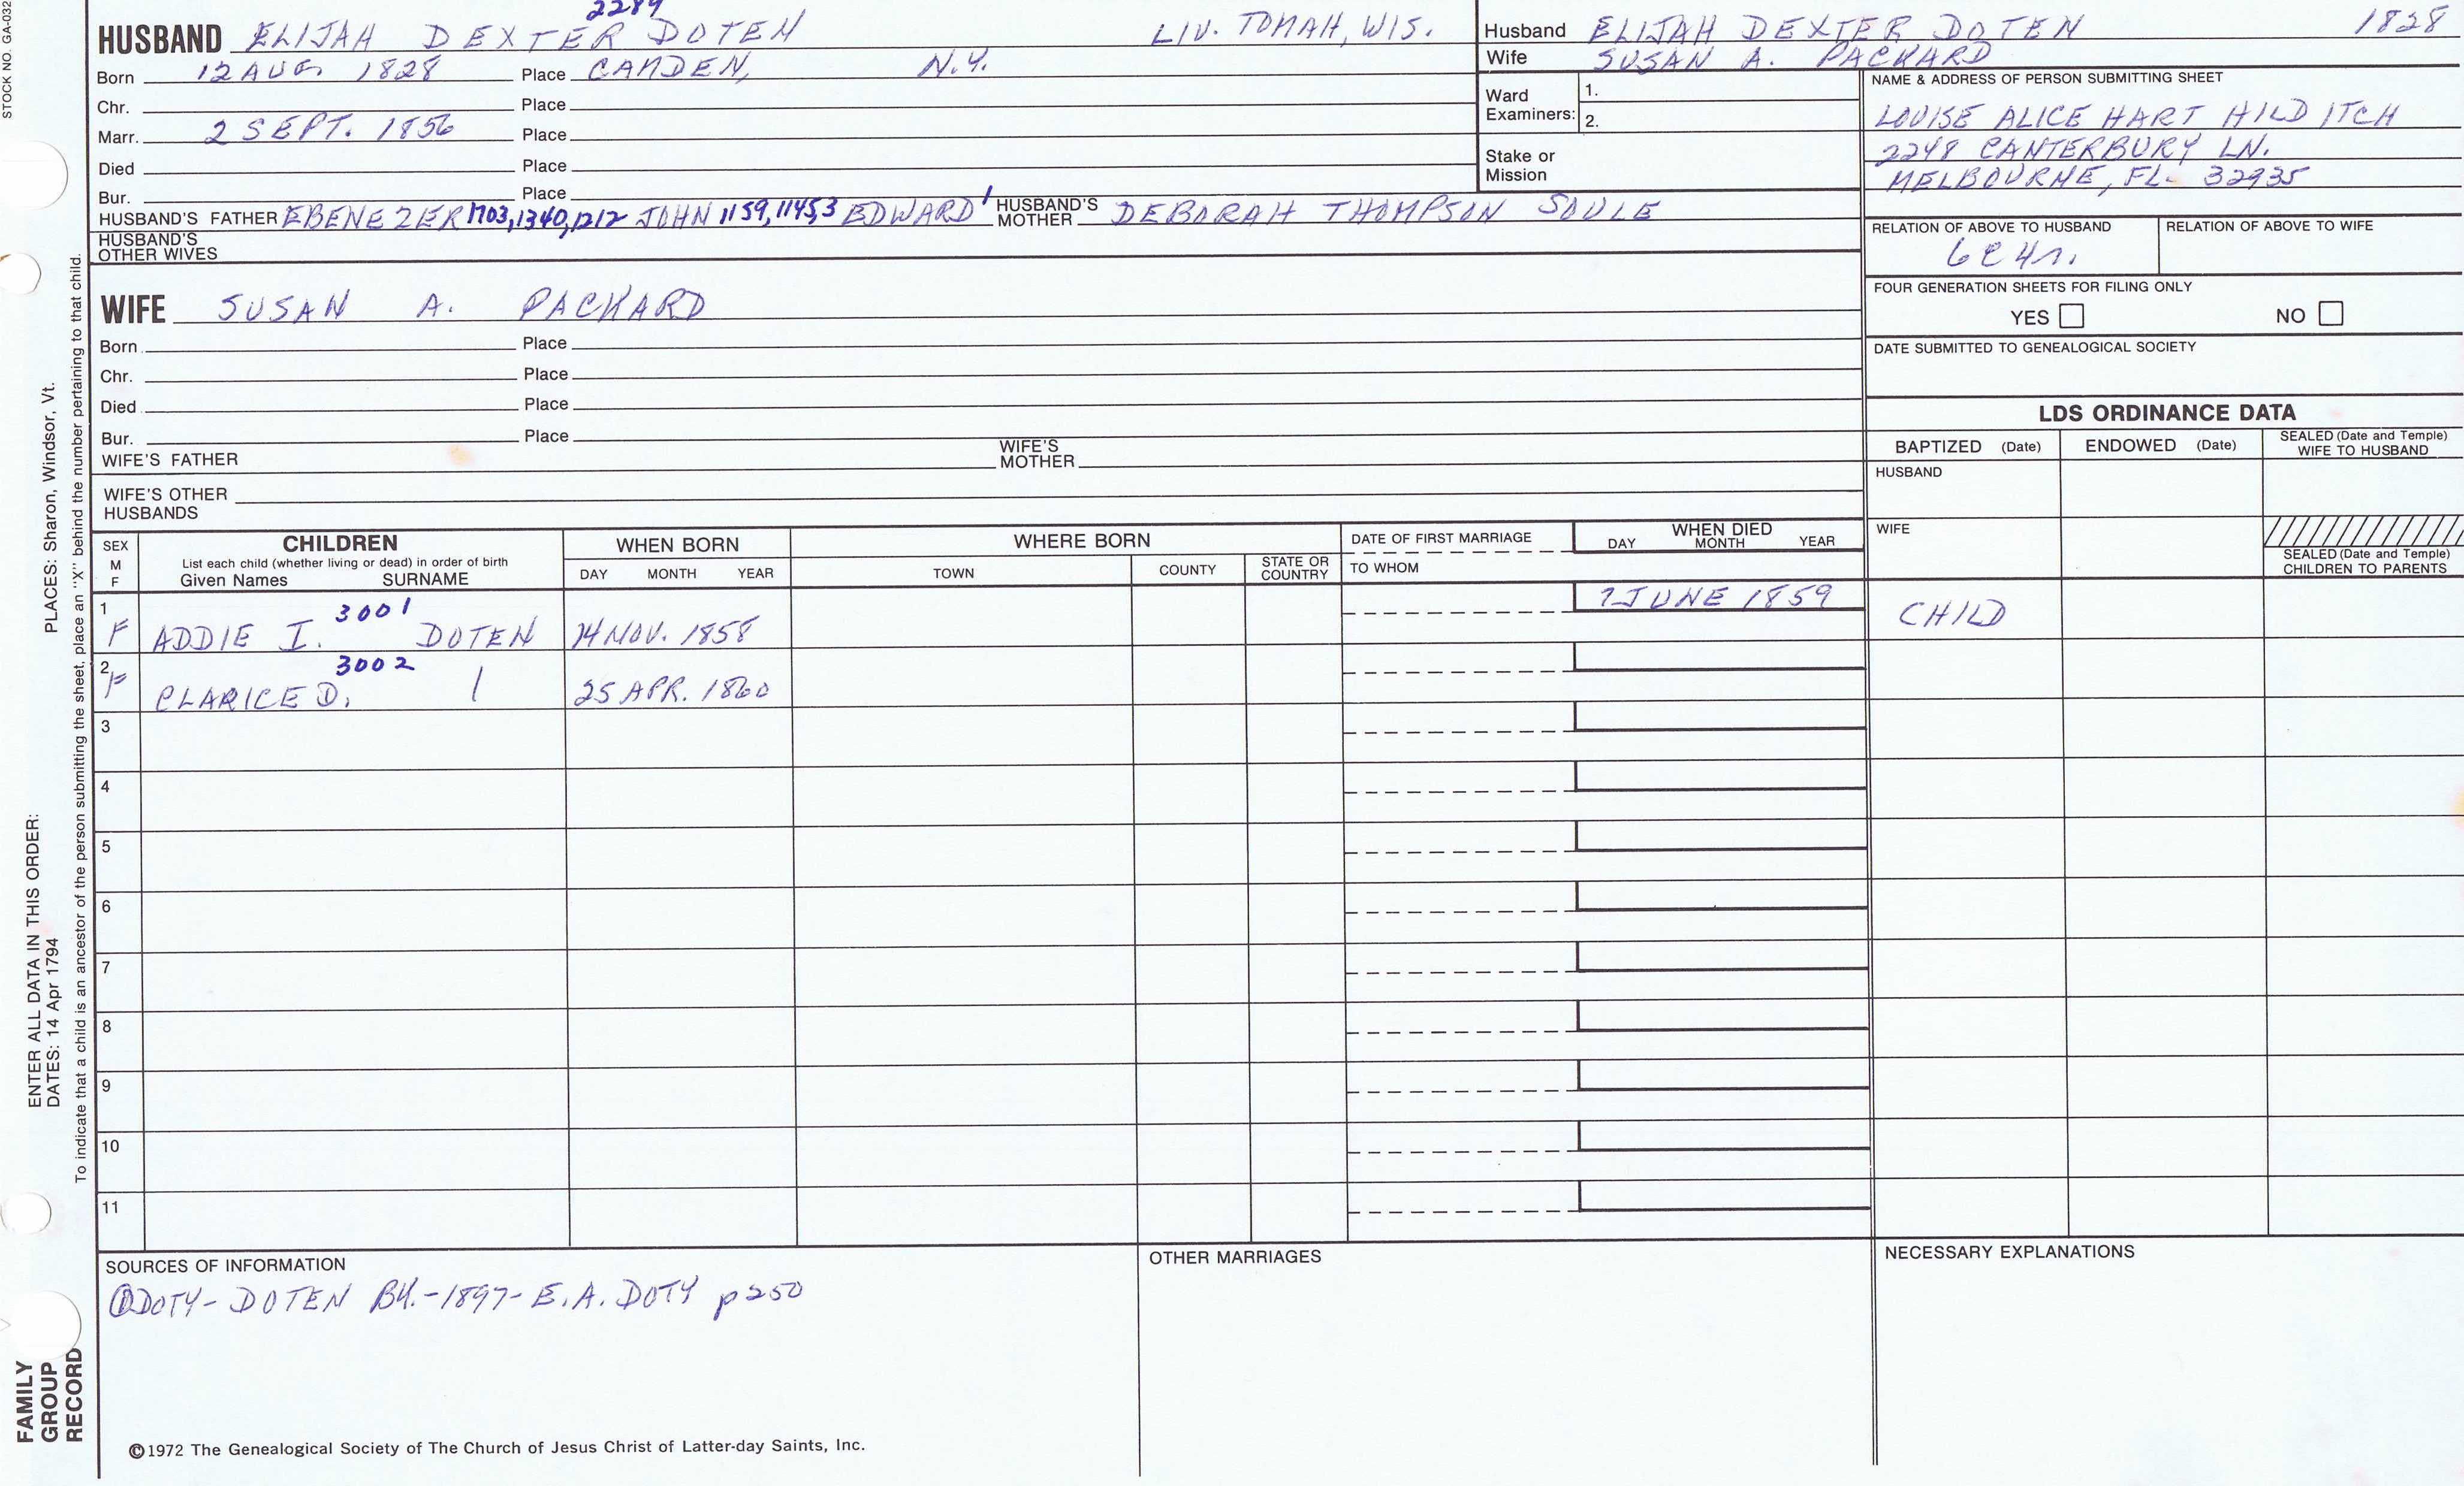 STOCK NO. GA-032
2289
HUSBAND ELIJAH DEXTER DOTEN LIV. TOMAH, WIS.
Born 12 AUG. 1828 Place CAMDEN, N.Y.
Chr. Place
Marr. 2 SEPT. 1856 Place
Died Place
Bur. Place
HUSBAND'S FATHER EBENEZER 1703, 1340, 1212 JOHN 1159, 1145, 3 EDWARD 1 HUSBAND'S MOTHER DEBORAH THOMPSON SOULE
HUSBAND'S OTHER WIVES
WIFE SUSAN A. PACKARD
Born Place
Chr. Place
Died Place
Bur. Place
WIFE'S FATHER WIFE'S MOTHER
WIFE'S OTHER HUSBANDS
Husband ELIJAH DEXTER DOTEN 1828
Wife SUSAN A. PACKARD
Ward Examiners: 1.
2.
Stake or Mission
NAME & ADDRESS OF PERSON SUBMITTING SHEET
LOUISE ALICE HART HILDITCH
2248 CANTERBURY LN.
MELBOURNE, FL. 32935
RELATION OF ABOVE TO HUSBAND RELATION OF ABOVE TO WIFE
6C4r.
FOUR GENERATION SHEETS FOR FILING ONLY
YES NO
DATE SUBMITTED TO GENEALOGICAL SOCIETY
LDS ORDINANCE DATA
BAPTIZED (Date) ENDOWED (Date) SEALED (Date and Temple) WIFE TO HUSBAND
HUSBAND
WIFE
SEALED (Date and Temple) CHILDREN TO PARENTS
SEX M F
CHILDREN
List each child (whether living or dead) in order of birth
Given Names SURNAME
WHEN BORN
DAY MONTH YEAR
WHERE BORN
TOWN COUNTY STATE OR COUNTRY
DATE OF FIRST MARRIAGE
TO WHOM
WHEN DIED
DAY MONTH YEAR
1 F ADDIE I. 3001 DOTEN 14 NOV. 1858 7 JUNE 1859 CHILD
2 F CLARICE D. 3002 25 APR. 1860
3
4
5
6
7
8
9
10
11
SOURCES OF INFORMATION
① DOTY-DOTEN BK.-1897-E.A. DOTY p250
OTHER MARRIAGES
NECESSARY EXPLANATIONS
©1972 The Genealogical Society of The Church of Jesus Christ of Latter-day Saints, Inc.
ENTER ALL DATA IN THIS ORDER:
DATES: 14 Apr 1794 PLACES: Sharon, Windsor, Vt.
To indicate that a child is an ancestor of the person submitting the sheet, place an "X" behind the number pertaining to that child.
FAMILY
GROUP
RECORD